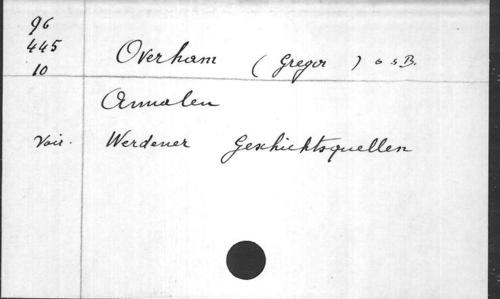 96
445
10
Overham (Gregor) o.s.B.
Annalen
Voir. Werdener Geschichtsquellen